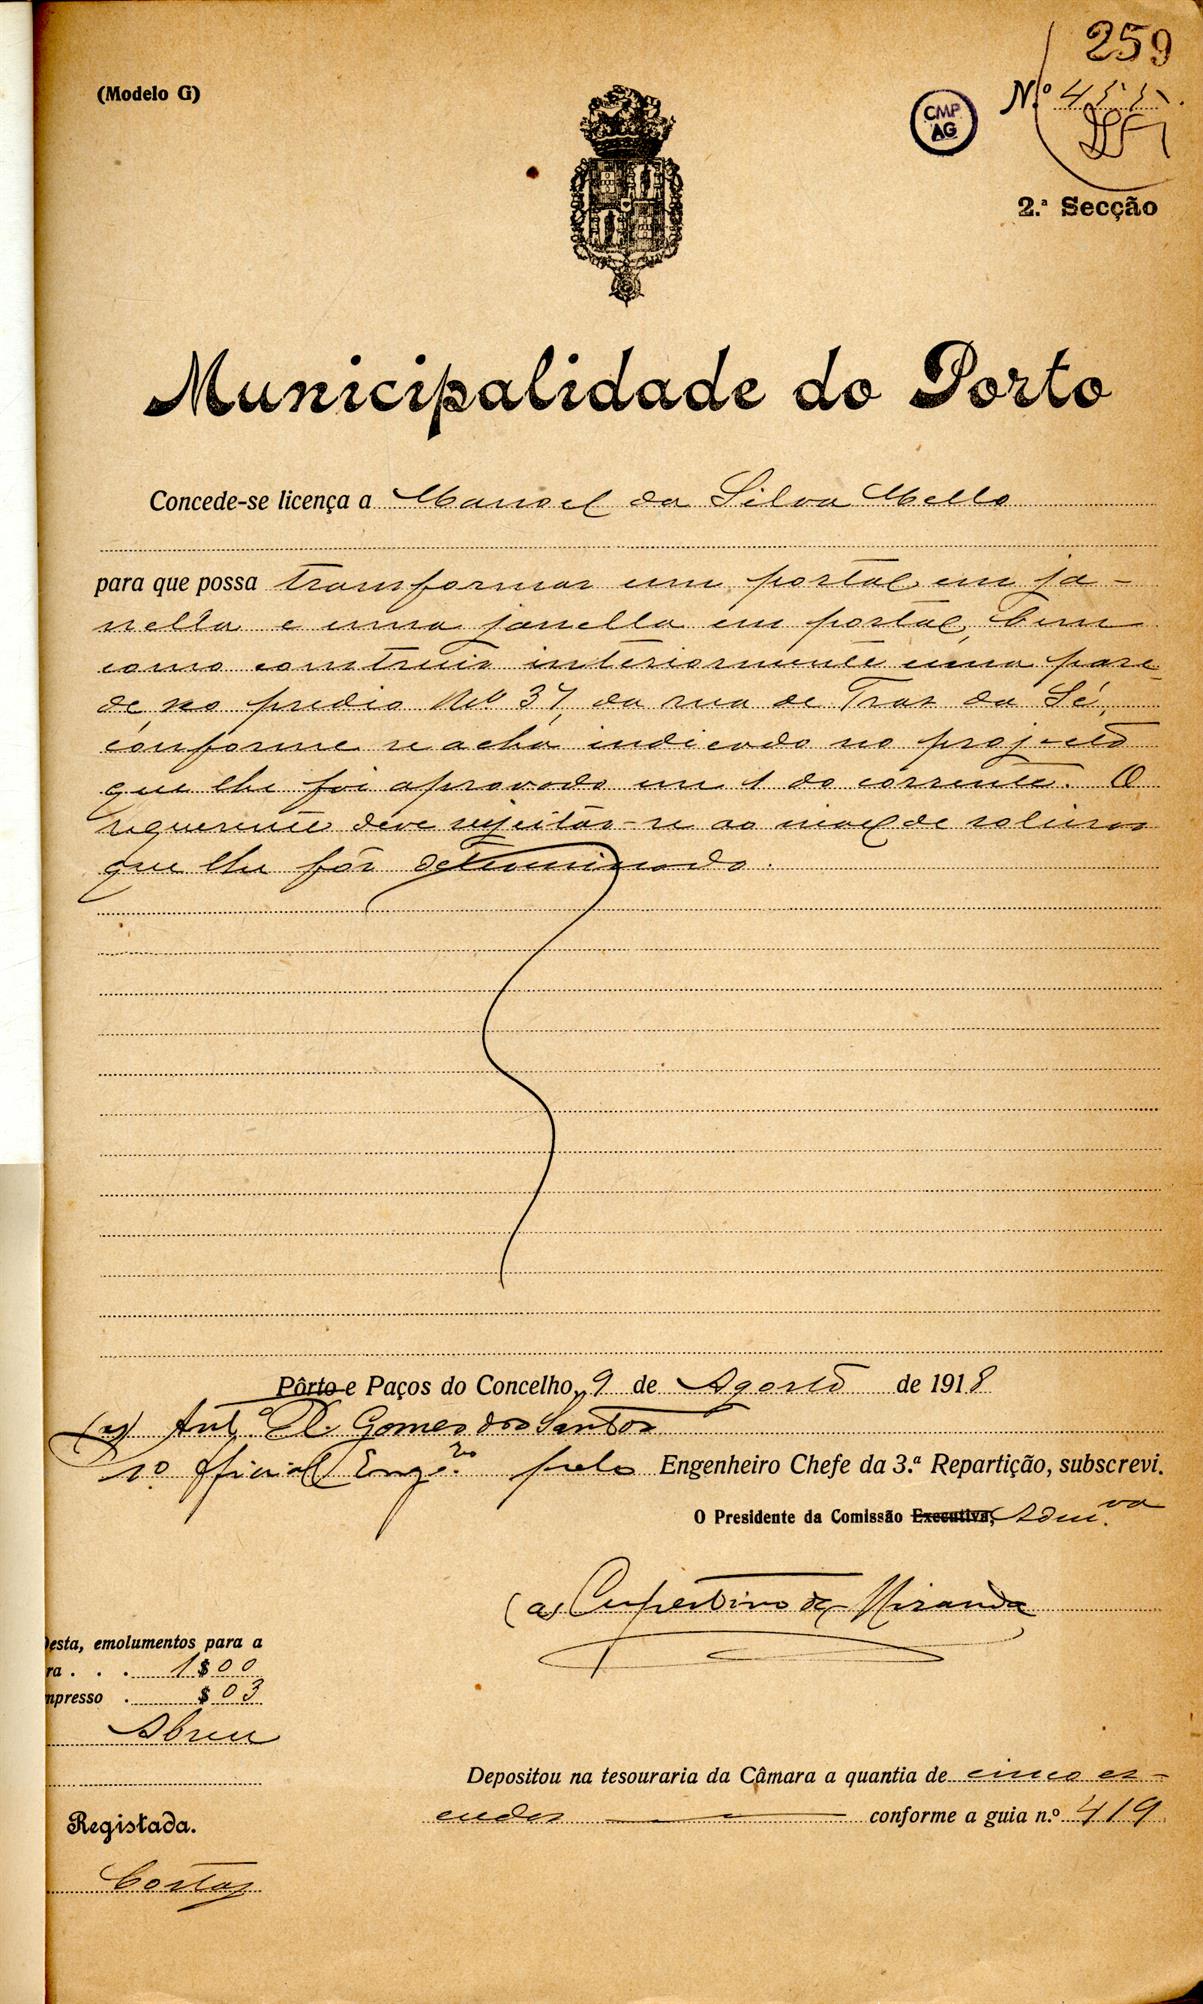 259
(Modelo G)
CMP
AG
N.º 455
2.ª Secção
Municipalidade do Porto
Concede-se licença a Manoel da Silva Mello
para que possa transformar um portal em ja-
nella e uma janella em portal, bem
como construir interiormente uma pare-
de, no predio Nº 37, da rua de Traz da Sé,
conforme se acha indicado no projecto
que lhe foi aprovado em 1 do corrente. O
requerente deve sujeitar-se ao nivel de soleiras
que lhe fôr determinado.
Pôrto e Paços do Concelho, 9 de Agosto de 1918
(a) Antº Gomes dos Santos
1º Official Engº pelo Engenheiro Chefe da 3.ª Repartição, subscrevi.
O Presidente da Comissão Executiva, Adm.va
(a) Cupertino de Miranda
Desta, emolumentos para a
ra . . . 1$00
mpresso . $03
Abreu
Depositou na tesouraria da Câmara a quantia de cinco es-
cudos conforme a guia n.º 419
Registada.
Costa